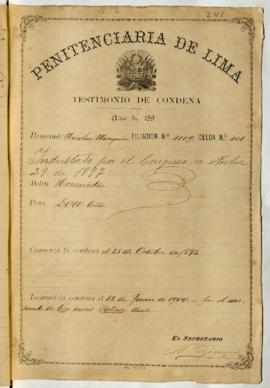 241
PENITENCIARIA DE LIMA
TESTIMONIO DE CONDENA
Año de 189
Rematado Nicolas FILIACION N.º 1209 CELDA N.º 101
Indultado por el Congreso,
29 de 1897
Delito Homicidio
Pena Doce años
Comienza la condena el 28 de Octubre de 1892
Termina la condena el 12 de Junio de 1904 por el
de tres meses dias.
EL SECRETARIO